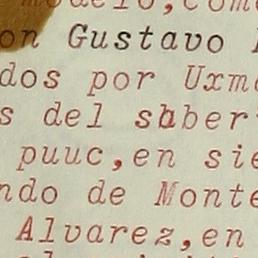 modelo, com
on Gustavo
dos por Uxm
s del saber
puuc,en sie
ndo de Monte
Alvarez,en